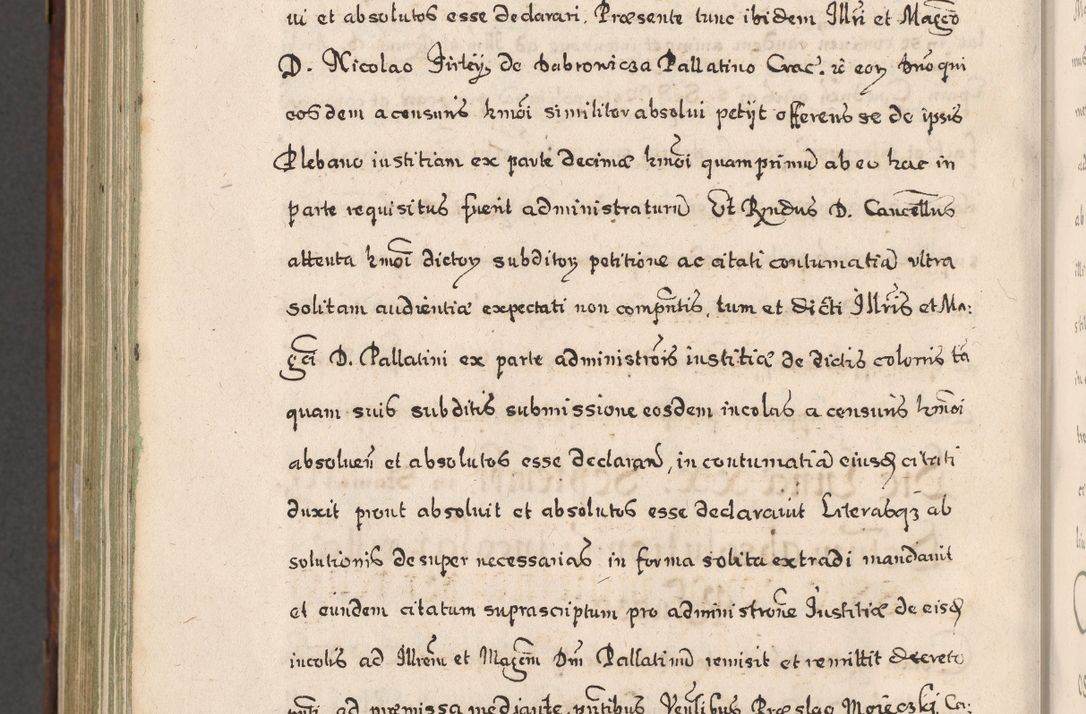 ui et absolutos esse declarari. Præsente tunc ibidem Illri et Magco
D. Nicolao Firley de Dabrowicza Pallatino Crac. et eorum Dno qui
eosdem a censuris hmoi similiter absolui petijt offerens se de ipsis
Plebano iustitiam ex parte decimæ hmoi quamprimũ ab eo hac in
parte requisitus fuerit administraturũ Et Rndus D. Cancellus
attenta hmoi dictorum subditorum petitione ac citati contumatia vltra
solitam audientiæ expectati non compntis, tum et dicti Illris et Ma:
gci D. Pallatini ex parte administrõis iustitiæ de dictis colonis tã
quam suis subditis submissione eosdem incolas a censuris hmoi
absoluen et absolutos esse declaran, in contumatia eiusd citati
duxit prout absoluit et absolutos esse declarauit Literasqz ab
solutionis desuper necessarias in forma solita extradi mandauit
et eundem citatum suprascriptum pro administrone Iustitiæ de eisd
incolis ad Illrem et Magcm Dm Pallatinũ remisit et remittit decreto
ad præmissa mediante, pntibus Venlibus Præslao Moieczki, Ca: